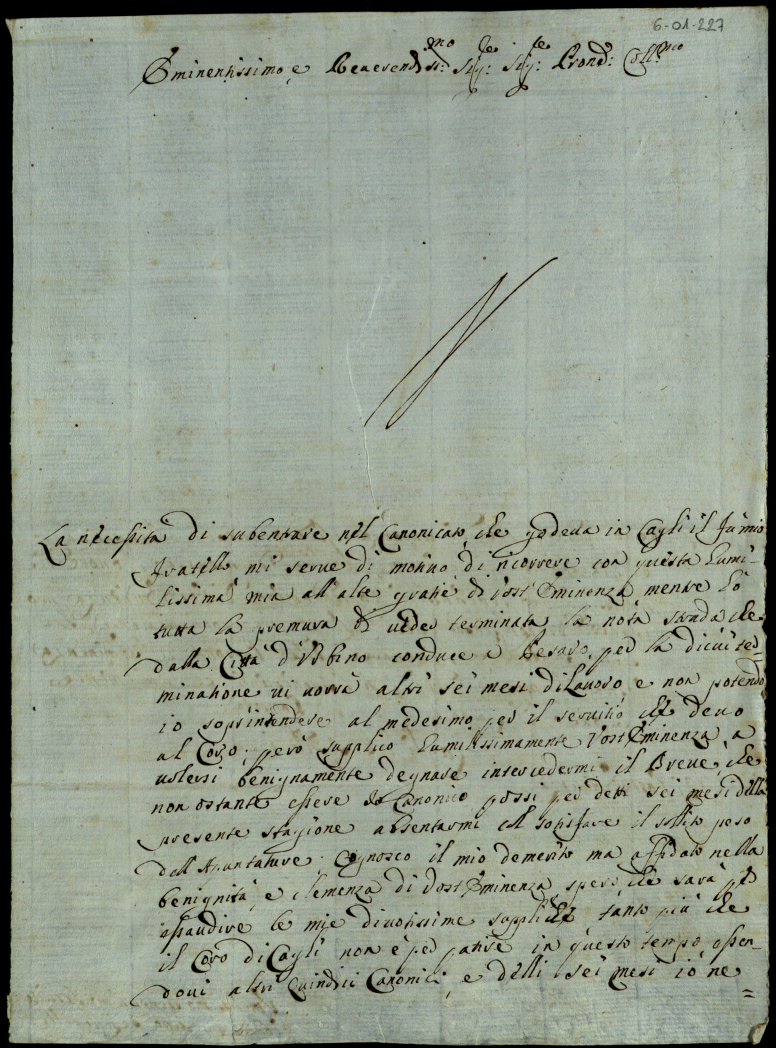 6-01-227
Eminentissimo e Reverendissmo Sigre: Sigre: Pron: Collmo
La necessità di subentrare nel Canonicato, che godeva in Cagli il fù mio
fratello mi serve di motivo di ricorrere con questa humi-
lissima mia all'alte gratie di Vost'Eminenza, mentre hò
tutta la premura di veder terminata la nota strada che
dalla Città d'Urbino conduce a Pesaro, per la di cui ter-
minatione vi vorrà altri sei mesi di lavoro e non potendo
io soprintendere al medesimo per il servitio che devo
al Coro; però supplico humilissimamente Vost'Eminenza a
volersi benignamente degnare intercedermi il Breve, che
non ostante essere Canonico possi per detti sei mesi della
presente stagione absentarmi col sotisfare il solito peso
dell'Apuntature. Cognosco il mio demerito ma affidato nella
benignità, e clemenza di Vost'Eminenza spero, che sarà per
essaudire le mie divotissime suppliche tanto più che
il Coro di Cagli non è per patire in questo tempo essen-
dovi altri quindici Canonici, e delli sei mesi io ne
=